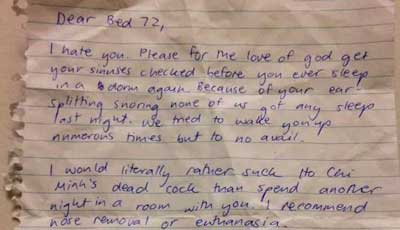 Dear Bed 72,
I hate you. Please for the love of god get
your sinuses checked before you ever sleep
in a dorm again. Because of your ear-
splitting snoring none of us got any sleep
last night. We tried to wake you up
numerous times but to no avail.
I would literally rather suck Ho Chi
Minh's dead cock than spend another
night in a room with you. I recommend
nose removal or euthanasia.